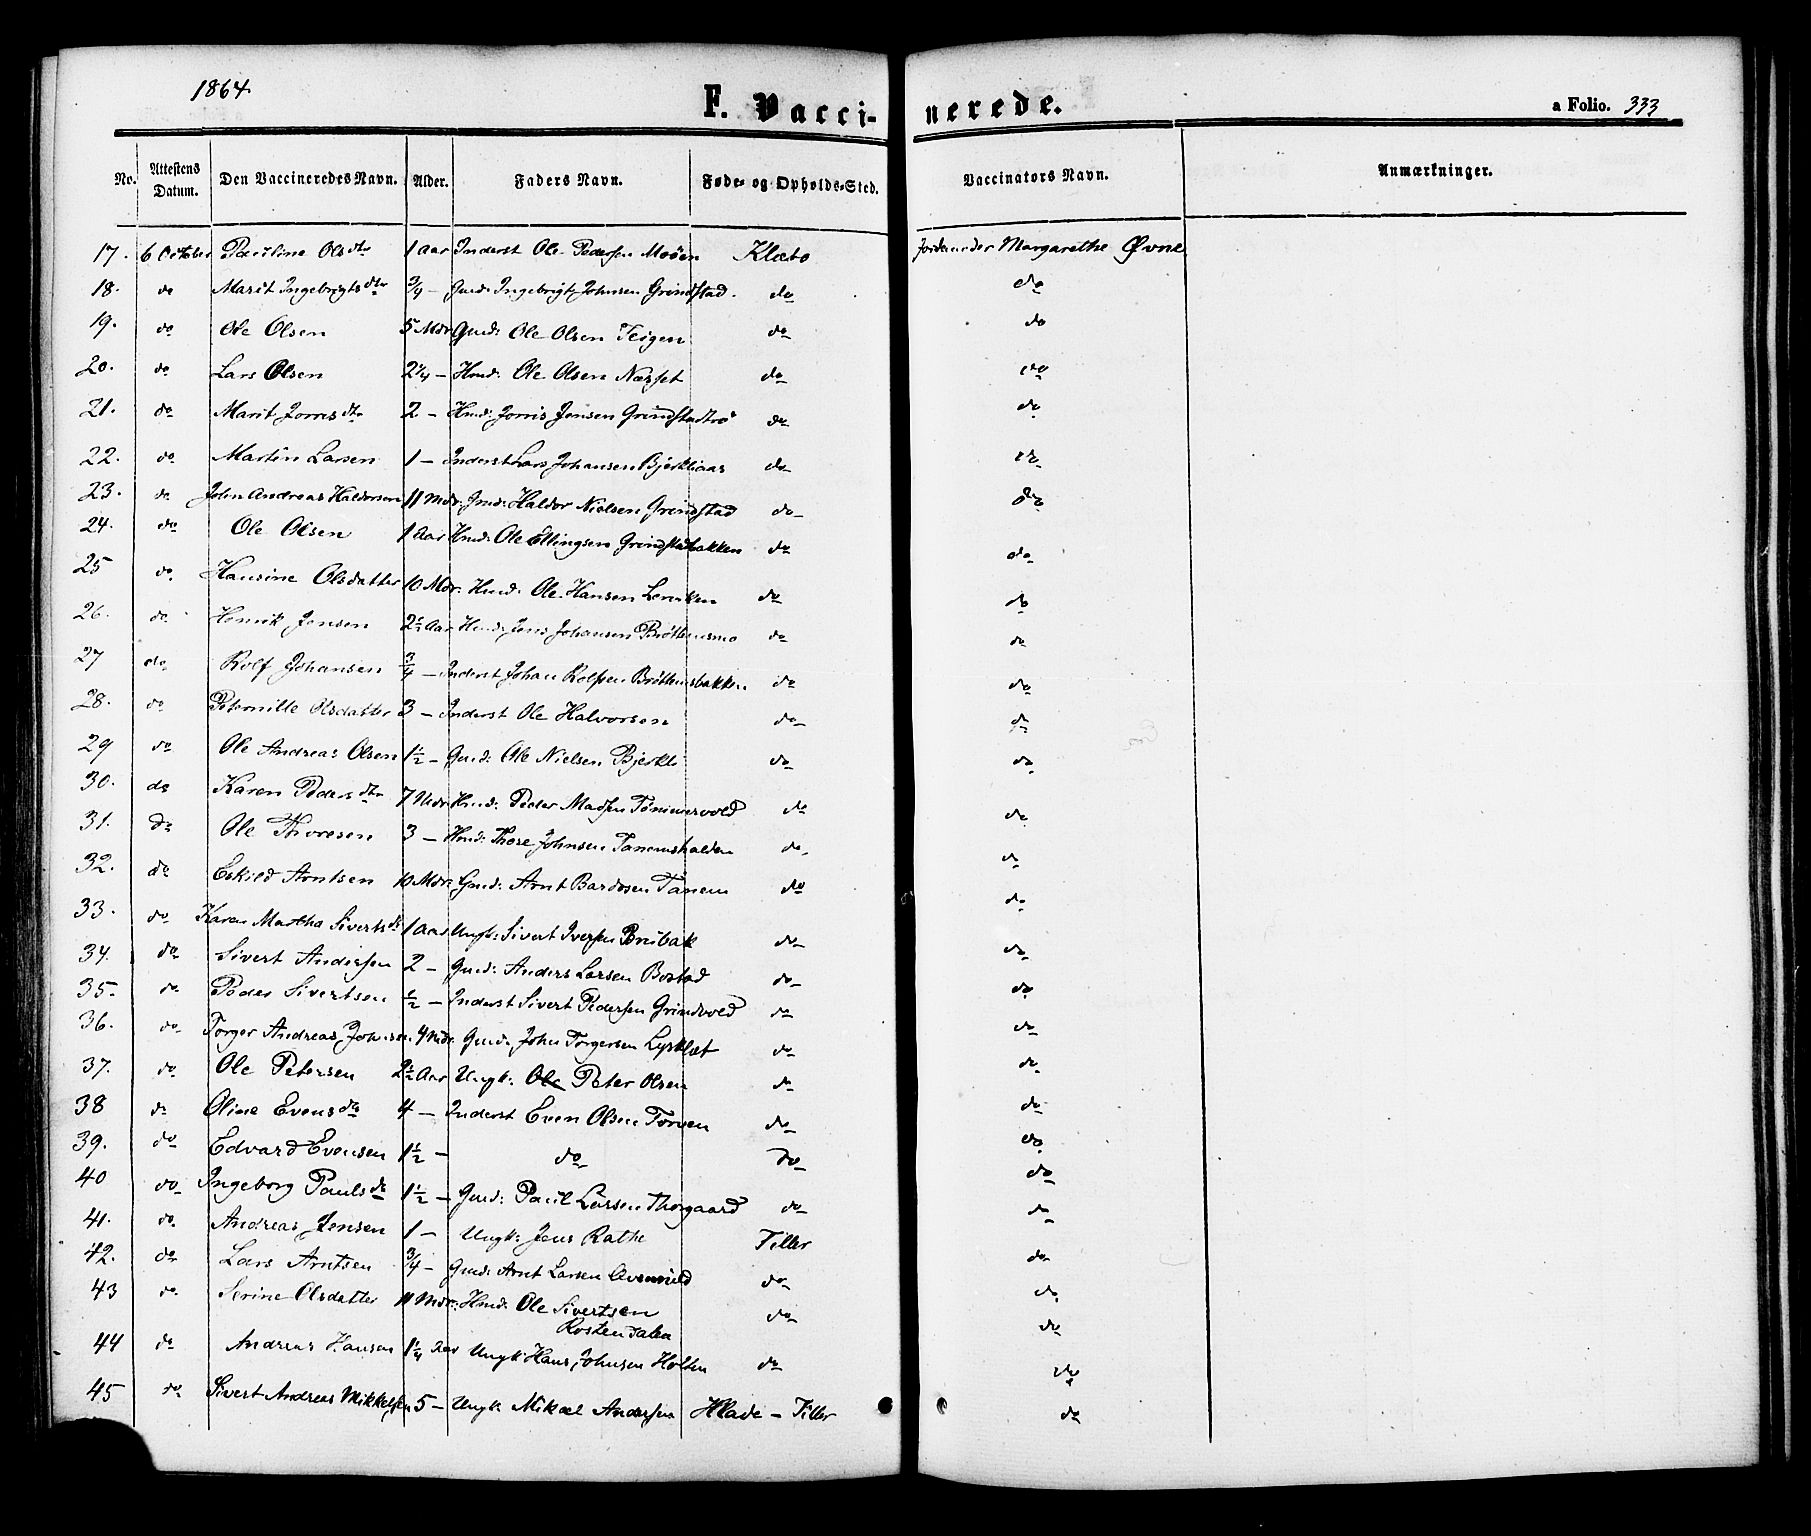 1864
F. Vacci-
nerede.
a Folio. 333
No. Attestens Datum. Den Vaccineredes Navn. Alder. Faders Navn. Føde- og Opholds-Sted. Vaccinators Navn. Anmærkninger.
17. 6 October Pauline Olsdtr 1 Aar Inderst Ole Pedersen Moöen Klæbo Jordemoder Margarethe Øvne
18. do Marit Ingebrigtsdtr 3/4 - Gmd: Ingebrigt Johnsen Grindstad. do do
19. do Ole Olsen 5 Mdr Gmd: Ole Olsen Teigen do do
20. do Lars Olsen 2 1/4 - Hmd: Ole Olsen Næsset do do
21. do Marit Jorrisdtr 2 - Hmd: Jorris Jensen Grindstadtrø do do
22. do Martin Larsen 1 - Inderst Lars Johansen Bjerkliaas do do
23. do John Andreas Haldorsen 11 Mdr: Gmd: Haldor Nielsen Grindstad do do
24. do Ole Olsen 1 Aar Hmd: Ole Ellingsen Grindstadbakken do do
25 do Hansine Olsdatter 10 Mdr. Hmd: Ole Hansen do do
26. do Henrik Jensen 2 1/2 Aar Hmd: Jens Johansen Bröttemsmo do do
27 do Rolf Johansen 3/4 - Inderst Johan Rolfsen Bröttemsbakken do do
28. do Peternille Olsdatter 3 - Inderst Ole Halvorsen do do
29 do Ole Andreas Olsen 1 1/2 - Gmd: Ole Nielsen Bjerkli do do
30. do Karen Pedersdtr 7 Mdr Hmd: Peder Madsen do do
31. do Ole Thoresen 3 - Hmd: Thore Johnsen Tanemshalden do do
32. do Eskild Arntsen 10 Mdr: Gmd: Arnt Bardosen Tanem do do
33. do Karen Martha Sivertsdr 1 Aar Ungk: Sivert Iversen Brubak do do
34. do Sivert Andersen 2 - Gmd: Anders Larsen Bostad do do
35. do Peder Sivertsen 1/2 - Inderst Sivert Pedersen Grindvold do do
36. do Torger Andreas Johnsen 4 Mdr. Gmd: John Torgersen Lysklæt do do
37. do Ole Petersen 2 1/2 Aar Ungk: Ole Peter Olsen do do
38 do Oline Evensdtr 4 - Inderst Even Olsen Torven do do
39. do Edvard Evensen 1 1/2 - do do do
40 do Ingeborg Paulsdr 1 1/2 - Gmd: Paul Larsen Thorgaard do do
41. do Andreas Jensen 1 - Ungk: Jens Rathe Tiller do
42. do Lars Arntsen 3/4 - Gmd: Arnt Larsen do do
43 do Serine Olsdatter 11 Mdr: Hmd: Ole Sivertsen do do
Rostendalen do
44 do Andreas Hansen 1 1/4 Aar Ungk: Hans Johnsen Holten do do
45 do Sivert Andreas Mikkelsen 5 - Ungk: Mikael Andersen Hlade - Tiller do